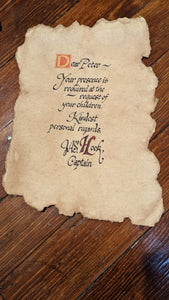 Dear Peter ~
Your presence is
required at the
~ request of
your children.
Kindest
personal regards,
Jas. Hook,
Captain